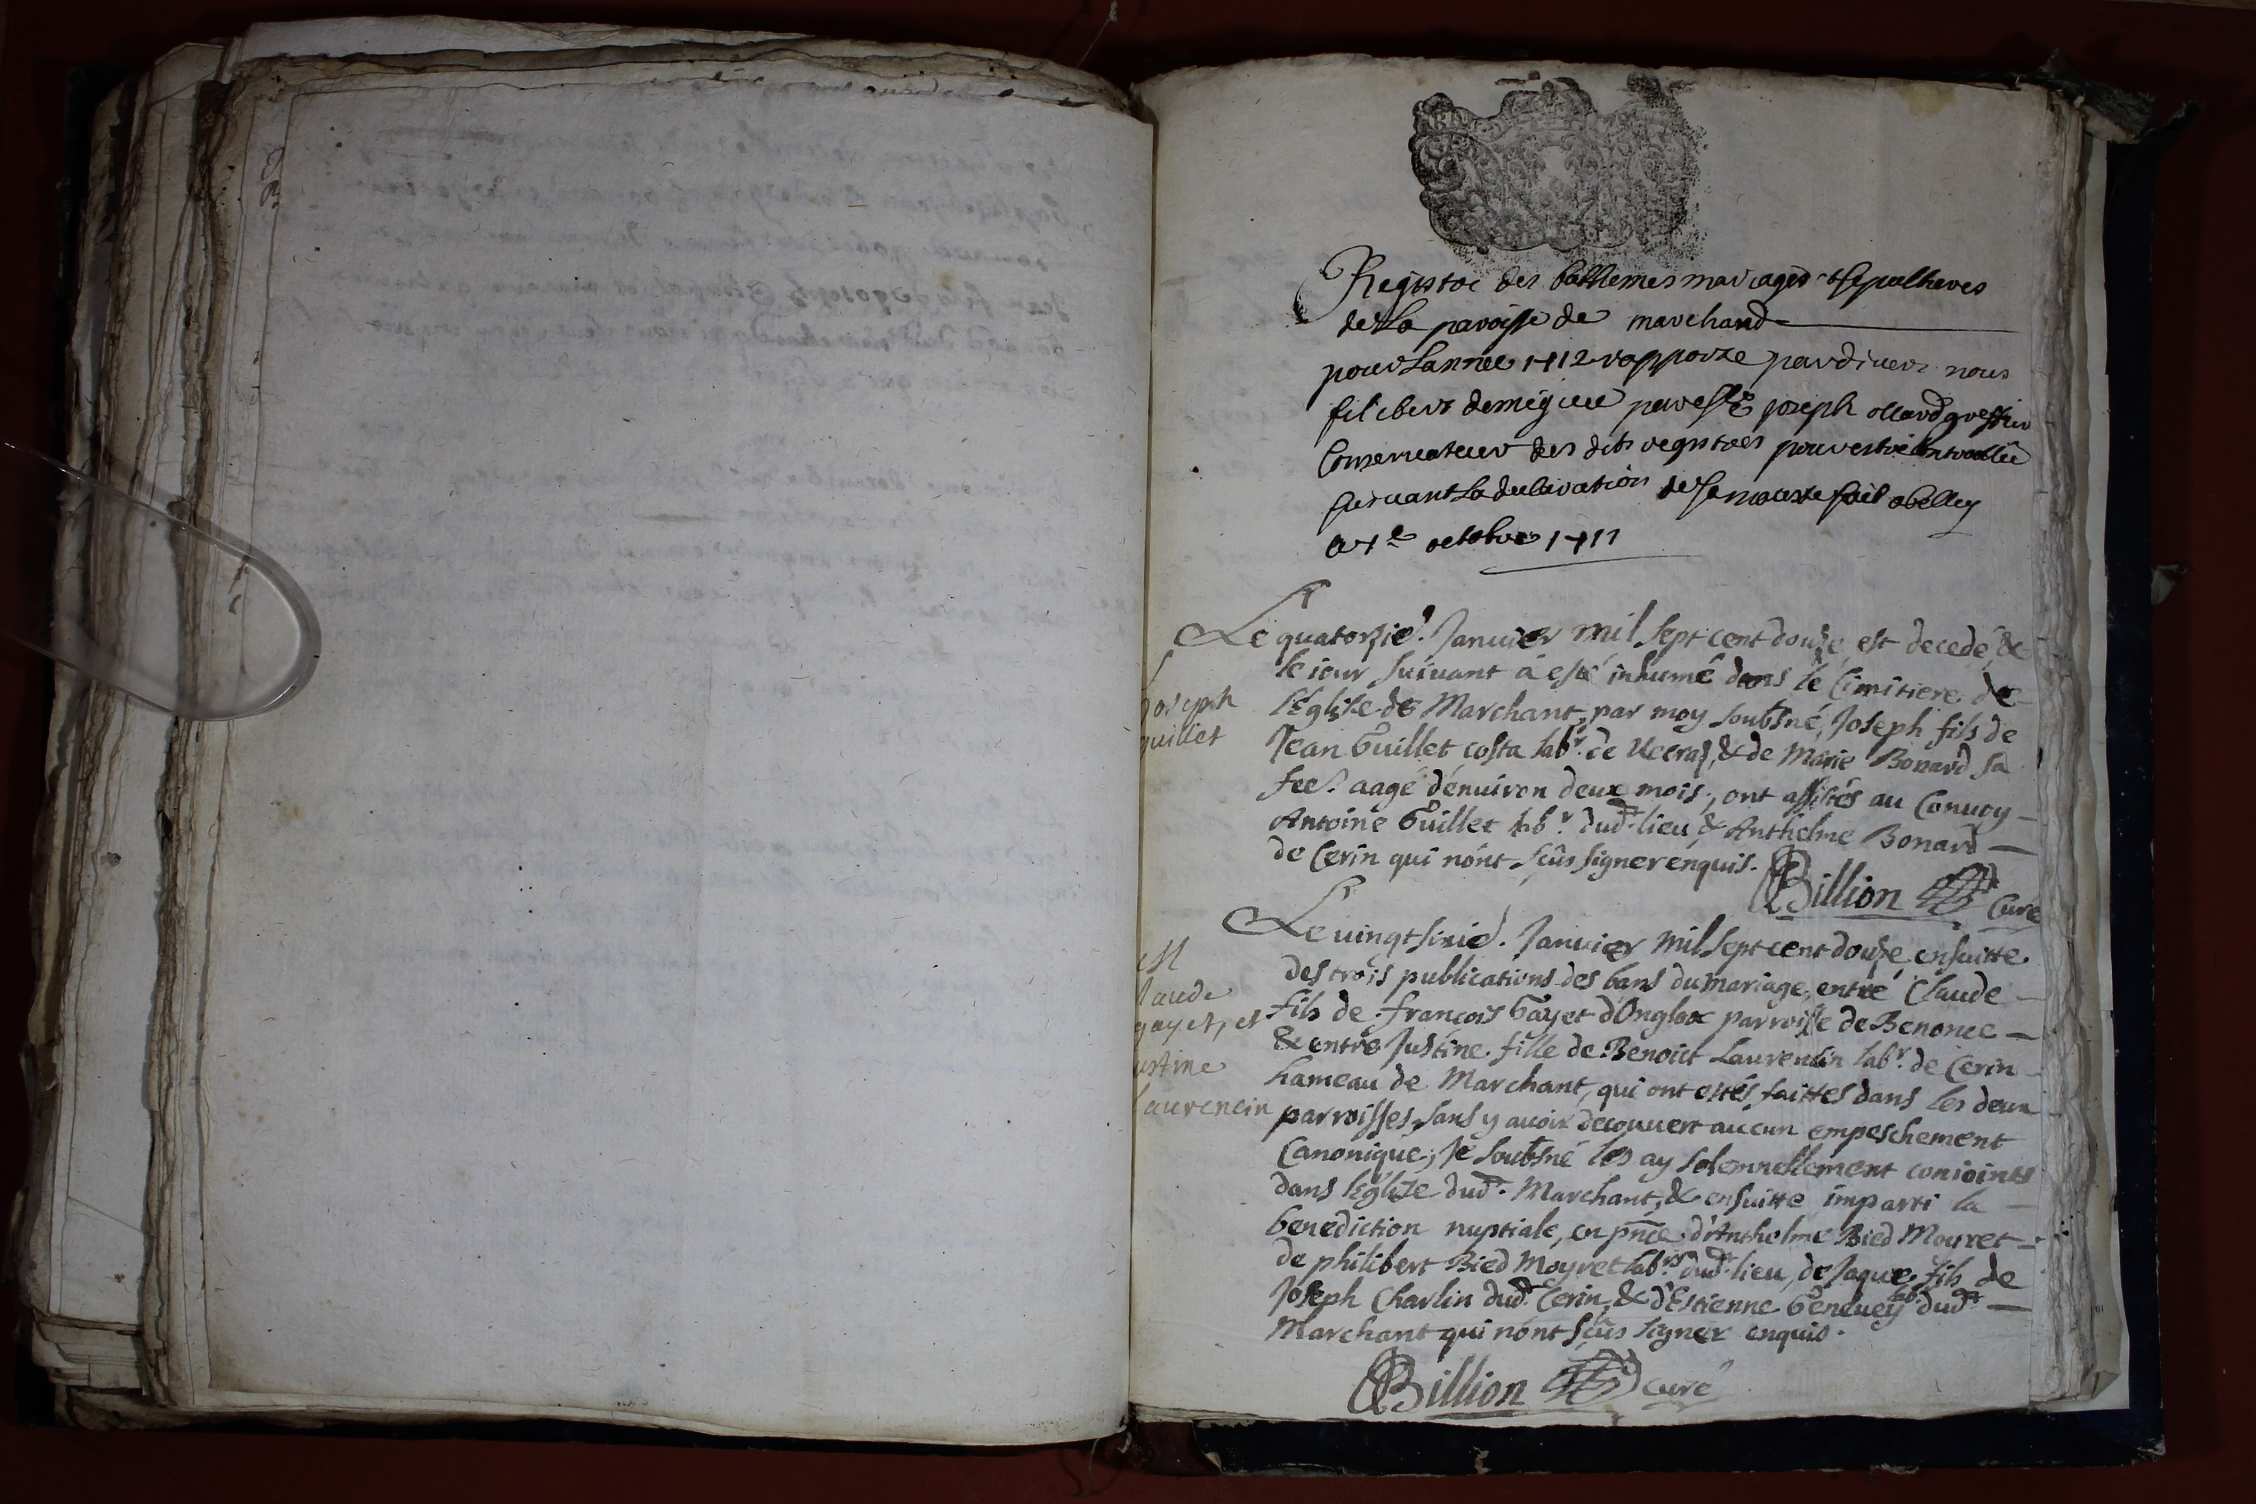 Registre des batthemes mariages et sepultures
de La paroisse de marchand
pour Lannee 1712 rapporte pardevers nous
filibert demegieu par Me joseph ollard greffier
Conservateur des dits registres pour estre Controllée
suivant La declaration de sa majeste fait a belley
a 7e octobre 1711
Le quatorzie. Janvier mil sept cent douze est decedé &
le iour suivant à esté inhumé dans le Cimitiere de
l'Eglize de Marchant, par moy soubsné, Joseph fils de
Jean Guillet costa labr. de & de Marie Bonard sa
fee. aagé d'enuiron deux mois, ont assistés au Conuoy
Antoine Guillet labr. dud. lieu, & Anthelme Bonard
de Cerin qui n'ont sçûs signer enquis.
Billion Curé
Joseph
guillet
Le uingt sixie. Januier mil sept cent douze ensuitte
des trois publications des bans du mariage, entre Claude
fils de françois Gayet d'Onglax parroisse de Benonce
& entre Justine fille de Benoict Laurencin labr. de Cerin
hameau de Marchant, qui ont estés faittes dans les deux
parroisses, sans y auoir decouuert aucun empeschement
Canonique, Je soubsné les ay solemnellement conioints
dans l'Eglize dud. Marchant, & ensuitte imparti la
benediction nuptiale, en pnce d'Anthelme Bied Moyret
de philibert Bied Moyret labrs dud. lieu, de Jaque fils de
Joseph Charlin dud. Cerin, & d'Estienne Geneuey lab. dud.
Marchant qui n'ont sçûs signer enquis.
Billion curé
M
laude
gayet, et
ustine
laurencin